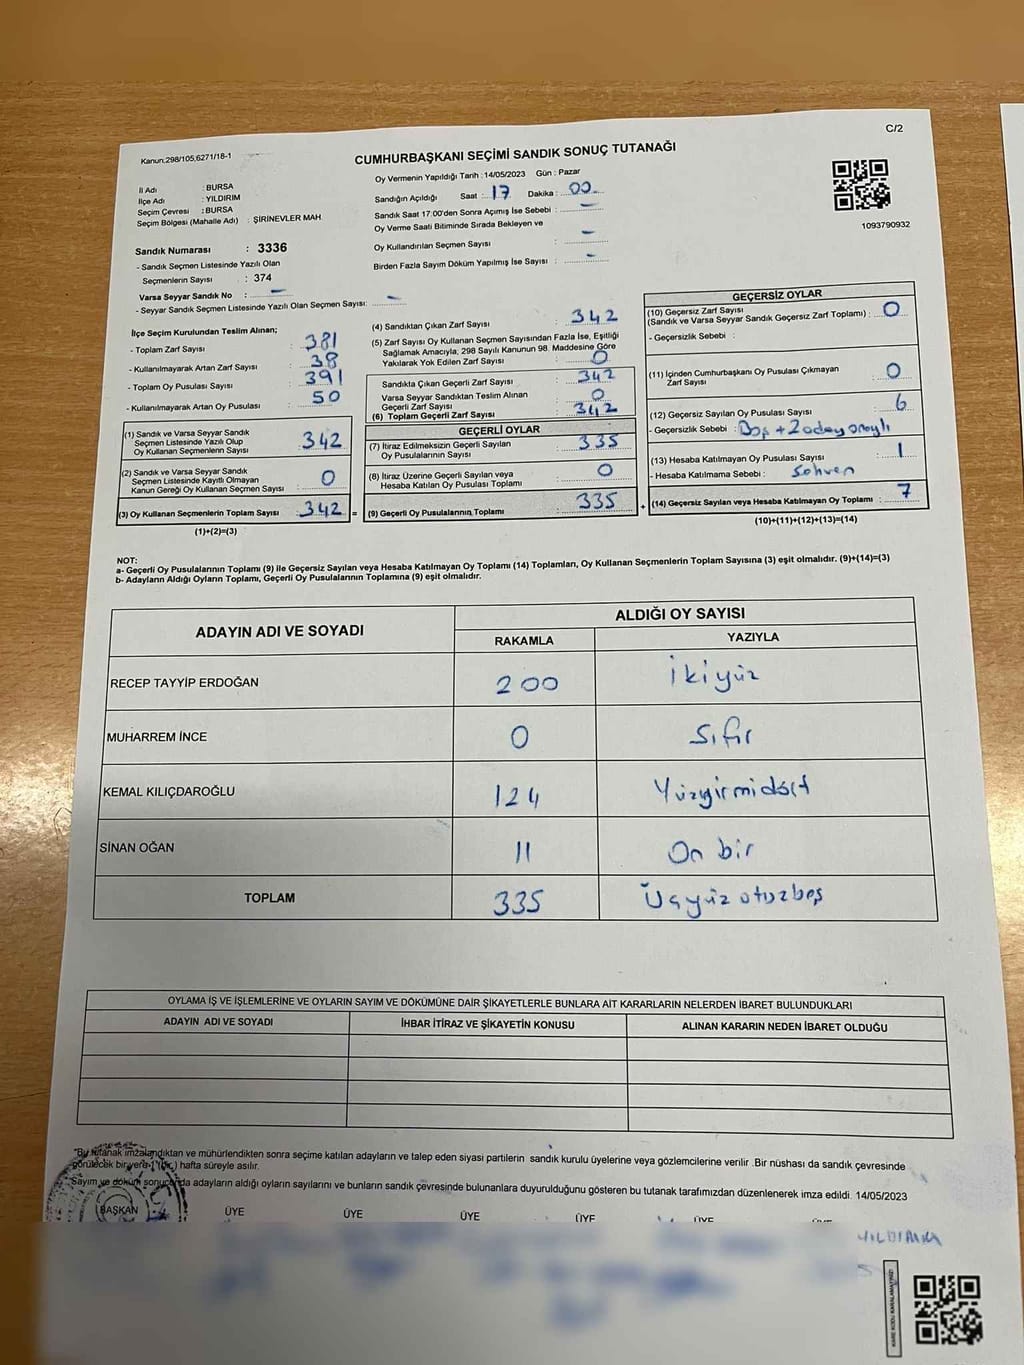 C/2
Kanun;298/105,6271/18-1
CUMHURBAŞKANI SEÇİMİ SANDIK SONUÇ TUTANAĞI
İl Adı : BURSA
İlçe Adı : YILDIRIM
Seçim Çevresi : BURSA
Seçim Bölgesi (Mahalle Adı) : ŞİRİNEVLER MAH
Sandık Numarası : 3336
- Sandık Seçmen Listesinde Yazılı Olan
Seçmenlerin Sayısı : 374
Varsa Seyyar Sandık No : -
- Seyyar Sandık Seçmen Listesinde Yazılı Olan Seçmen Sayısı: -
Oy Vermenin Yapıldığı Tarih :14/05/2023 Gün : Pazar
Sandığın Açıldığı Saat : 17 Dakika : 00
Sandık Saat 17:00'den Sonra Açımış İse Sebebi : -
Oy Verme Saati Bitiminde Sırada Bekleyen ve
Oy Kullandırılan Seçmen Sayısı : -
Birden Fazla Sayım Döküm Yapılmış İse Sayısı : -
1093790932
İlçe Seçim Kurulundan Teslim Alınan;
- Toplam Zarf Sayısı : 381
- Kullanılmayarak Artan Zarf Sayısı : 38
- Toplam Oy Pusulası Sayısı : 391
- Kullanılmayarak Artan Oy Pusulası : 50
(1) Sandık ve Varsa Seyyar Sandık
Seçmen Listesinde Yazılı Olup
Oy Kullanan Seçmenlerin Sayısı : 342
(2) Sandık ve Varsa Seyyar Sandık
Seçmen Listesinde Kayıtlı Olmayan
Kanun Gereği Oy Kullanan Seçmen Sayısı : 0
(3) Oy Kullanan Seçmenlerin Toplam Sayısı : 342 =
(1)+(2)=(3)
(4) Sandıktan Çıkan Zarf Sayısı : 342
(5) Zarf Sayısı Oy Kullanan Seçmen Sayısından Fazla İse, Eşitliği
Sağlamak Amacıyla, 298 Sayılı Kanunun 98. Maddesine Göre
Yakılarak Yok Edilen Zarf Sayısı : 0
Sandıkta Çıkan Geçerli Zarf Sayısı : 342
Varsa Seyyar Sandıktan Teslim Alınan
Geçerli Zarf Sayısı : 0
(6) Toplam Geçerli Zarf Sayısı : 342
GEÇERLİ OYLAR
(7) İtiraz Edilmeksizin Geçerli Sayılan
Oy Pusulalarının Sayısı : 335
(8) İtiraz Üzerine Geçerli Sayılan veya
Hesaba Katılan Oy Pusulası Toplamı : 0
(9) Geçerli Oy Pusulalarının Toplamı : 335 +
GEÇERSİZ OYLAR
(10) Geçersiz Zarf Sayısı
(Sandık ve Varsa Seyyar Sandık Geçersiz Zarf Toplamı) : 0
- Geçersizlik Sebebi :
(11) İçinden Cumhurbaşkanı Oy Pusulası Çıkmayan
Zarf Sayısı : 0
(12) Geçersiz Sayılan Oy Pusulası Sayısı : 6
- Geçersizlik Sebebi : Boş + 2 aday onaylı
(13) Hesaba Katılmayan Oy Pusulası Sayısı : 1
- Hesaba Katılmama Sebebi : Sehven
(14) Geçersiz Sayılan veya Hesaba Katılmayan Oy Toplamı : 7
(10)+(11)+(12)+(13)=(14)
NOT:
a- Geçerli Oy Pusulalarının Toplamı (9) ile Geçersiz Sayılan veya Hesaba Katılmayan Oy Toplamı (14) Toplamları, Oy Kullanan Seçmenlerin Toplam Sayısına (3) eşit olmalıdır. (9)+(14)=(3)
b- Adayların Aldığı Oyların Toplamı, Geçerli Oy Pusulalarının Toplamına (9) eşit olmalıdır.
ADAYIN ADI VE SOYADI
ALDIĞI OY SAYISI
RAKAMLA YAZIYLA
RECEP TAYYİP ERDOĞAN 200 İkiyüz
MUHARREM İNCE 0 Sıfır
KEMAL KILIÇDAROĞLU 124 Yüzyirmidört
SİNAN OĞAN 11 On bir
TOPLAM 335 Üçyüzotuzbeş
OYLAMA İŞ VE İŞLEMLERİNE VE OYLARIN SAYIM VE DÖKÜMÜNE DAİR ŞİKAYETLERLE BUNLARA AİT KARARLARIN NELERDEN İBARET BULUNDUKLARI
ADAYIN ADI VE SOYADI İHBAR İTİRAZ VE ŞİKAYETİN KONUSU ALINAN KARARIN NEDEN İBARET OLDUĞU
"Bu tutanak imzalandıktan ve mühürlendikten sonra seçime katılan adayların ve talep eden siyasi partilerin sandık kurulu üyelerine veya gözlemcilerine verilir .Bir nüshası da sandık çevresinde
görülecek bir yere 1 (bir) hafta süreyle asılır.
Sayım ve döküm sonucunda adayların aldığı oyların sayılarını ve bunların sandık çevresinde bulunanlara duyurulduğunu gösteren bu tutanak tarafımızdan düzenlenerek imza edildi. 14/05/2023
BAŞKAN ÜYE ÜYE ÜYE ÜYE ÜYE
YILDIRIM
KARE KODU KARALAMAYINIZ!